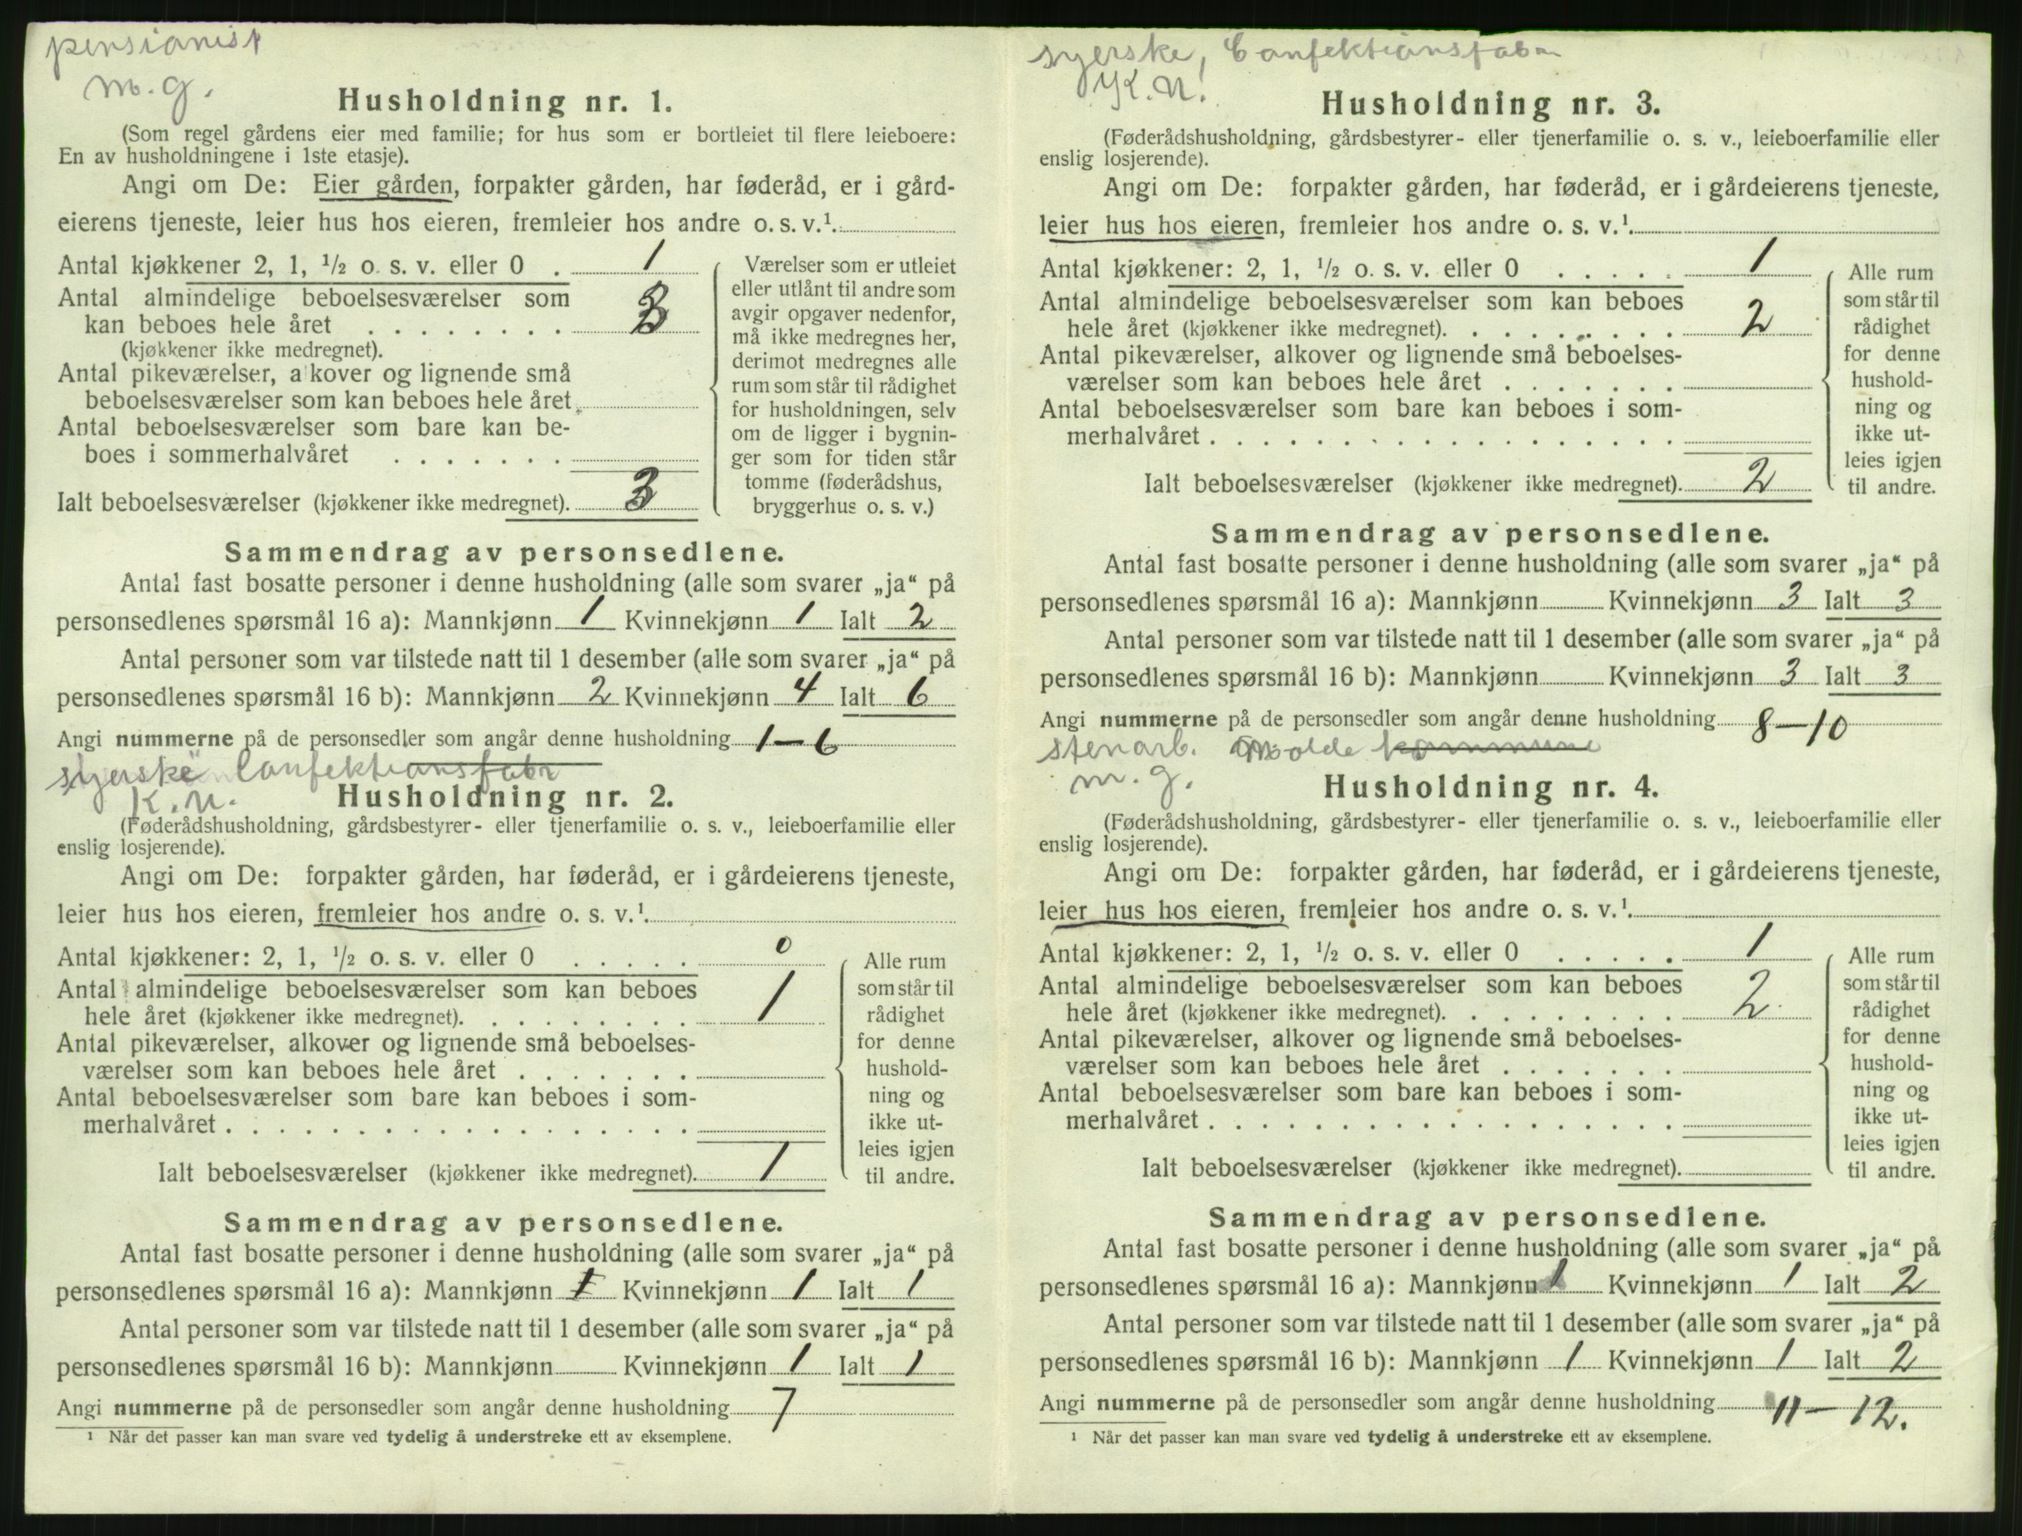 pensionist
m. g.
Husholdning nr. 1.
(Som regel gårdens eier med familie; for hus som er bortleiet til flere leieboere:
En av husholdningene i 1ste etasje).
Angi om De: Eier gården, forpakter gården, har føderåd, er i gård-
eierens tjeneste, leier hus hos eieren, fremleier hos andre o. s. v.¹.
Antal kjøkkener 2, 1, ½ o. s. v. eller 0 . 1
Antal almindelige beboelsesværelser som
kan beboes hele året . . . . . . . . 3
(kjøkkener ikke medregnet).
Antal pikeværelser, alkover og lignende små
beboelsesværelser som kan beboes hele året
Antal beboelsesværelser som bare kan be-
boes i sommerhalvåret . . . . . . .
Ialt beboelsesværelser (kjøkkener ikke medregnet). 3
Værelser som er utleiet
eller utlånt til andre som
avgir opgaver nedenfor,
må ikke medregnes her,
derimot medregnes alle
rum som står til rådighet
for husholdningen, selv
om de ligger i bygnin-
ger som for tiden står
tomme (føderådshus,
bryggerhus o. s. v.)
Sammendrag av personsedlene.
Antal fast bosatte personer i denne husholdning (alle som svarer „ja“ på
personsedlenes spørsmål 16 a): Mannkjønn 1 Kvinnekjønn 1 Ialt 2
Antal personer som var tilstede natt til 1 desember (alle som svarer „ja“ på
personsedlenes spørsmål 16 b): Mannkjønn 2 Kvinnekjønn 4 Ialt 6
Angi nummerne på de personsedler som angår denne husholdning 1–6
syerske Confektionsfabr
K. N.
Husholdning nr. 2.
(Føderådshusholdning, gårdsbestyrer- eller tjenerfamilie o. s. v., leieboerfamilie eller
enslig losjerende).
Angi om De: forpakter gården, har føderåd, er i gårdeierens tjeneste,
leier hus hos eieren, fremleier hos andre o. s. v.¹.
Antal kjøkkener: 2, 1, ½ o. s. v. eller 0 . . . . . 0
Antal almindelige beboelsesværelser som kan beboes
hele året (kjøkkener ikke medregnet). . . . . . . . . 1
Antal pikeværelser, alkover og lignende små beboelses-
værelser som kan beboes hele året . . . . . . .
Antal beboelsesværelser som bare kan beboes i som-
merhalvåret . . . . . . . . . . . . . . . . . .
Ialt beboelsesværelser (kjøkkener ikke medregnet). 1
Alle rum
som står til
rådighet
for denne
hushold-
ning og
ikke ut-
leies igjen
til andre.
Sammendrag av personsedlene.
Antal fast bosatte personer i denne husholdning (alle som svarer „ja“ på
personsedlenes spørsmål 16 a): Mannkjønn 1 Kvinnekjønn 1 Ialt 1
Antal personer som var tilstede natt til 1 desember (alle som svarer „ja“ på
personsedlenes spørsmål 16 b): Mannkjønn Kvinnekjønn 1 Ialt 1
Angi nummerne på de personsedler som angår denne husholdning 7
¹ Når det passer kan man svare ved tydelig å understreke ett av eksemplene.
syerske, Confektionsfabr
K. N.
Husholdning nr. 3.
(Føderådshusholdning, gårdsbestyrer- eller tjenerfamilie o. s. v., leieboerfamilie eller
enslig losjerende).
Angi om De: forpakter gården, har føderåd, er i gårdeierens tjeneste,
leier hus hos eieren, fremleier hos andre o. s. v.¹.
Antal kjøkkener: 2, 1, ½ o. s. v. eller 0 . . . . . 1
Antal almindelige beboelsesværelser som kan beboes
hele året (kjøkkener ikke medregnet). . . . . . . . . 2
Antal pikeværelser, alkover og lignende små beboelses-
værelser som kan beboes hele året . . . . . . .
Antal beboelsesværelser som bare kan beboes i som-
merhalvåret . . . . . . . . . . . . . . . . . .
Ialt beboelsesværelser (kjøkkener ikke medregnet). 2
Alle rum
som står til
rådighet
for denne
hushold-
ning og
ikke ut-
leies igjen
til andre.
Sammendrag av personsedlene.
Antal fast bosatte personer i denne husholdning (alle som svarer „ja“ på
personsedlenes spørsmål 16 a): Mannkjønn Kvinnekjønn 3 Ialt 3
Antal personer som var tilstede natt til 1 desember (alle som svarer „ja“ på
personsedlenes spørsmål 16 b): Mannkjønn Kvinnekjønn 3 Ialt 3
Angi nummerne på de personsedler som angår denne husholdning 8–10
stenarb. Molde kommune
m. g.
Husholdning nr. 4.
(Føderådshusholdning, gårdsbestyrer- eller tjenerfamilie o. s. v., leieboerfamilie eller
enslig losjerende).
Angi om De: forpakter gården, har føderåd, er i gårdeierens tjeneste,
leier hus hos eieren, fremleier hos andre o. s. v.¹.
Antal kjøkkener: 2, 1, ½ o. s. v. eller 0 . . . . . 1
Antal almindelige beboelsesværelser som kan beboes
hele året (kjøkkener ikke medregnet). . . . . . . . . 2
Antal pikeværelser, alkover og lignende små beboelses-
værelser som kan beboes hele året . . . . . . .
Antal beboelsesværelser som bare kan beboes i som-
merhalvåret . . . . . . . . . . . . . . . . . .
Ialt beboelsesværelser (kjøkkener ikke medregnet).
Alle rum
som står til
rådighet
for denne
hushold-
ning og
ikke ut-
leies igjen
til andre.
Sammendrag av personsedlene.
Antal fast bosatte personer i denne husholdning (alle som svarer „ja“ på
personsedlenes spørsmål 16 a): Mannkjønn 1 Kvinnekjønn 1 Ialt 2
Antal personer som var tilstede natt til 1 desember (alle som svarer „ja“ på
personsedlenes spørsmål 16 b): Mannkjønn 1 Kvinnekjønn 1 Ialt 2
Angi nummerne på de personsedler som angår denne husholdning 11–12.
¹ Når det passer kan man svare ved tydelig å understreke ett av eksemplene.